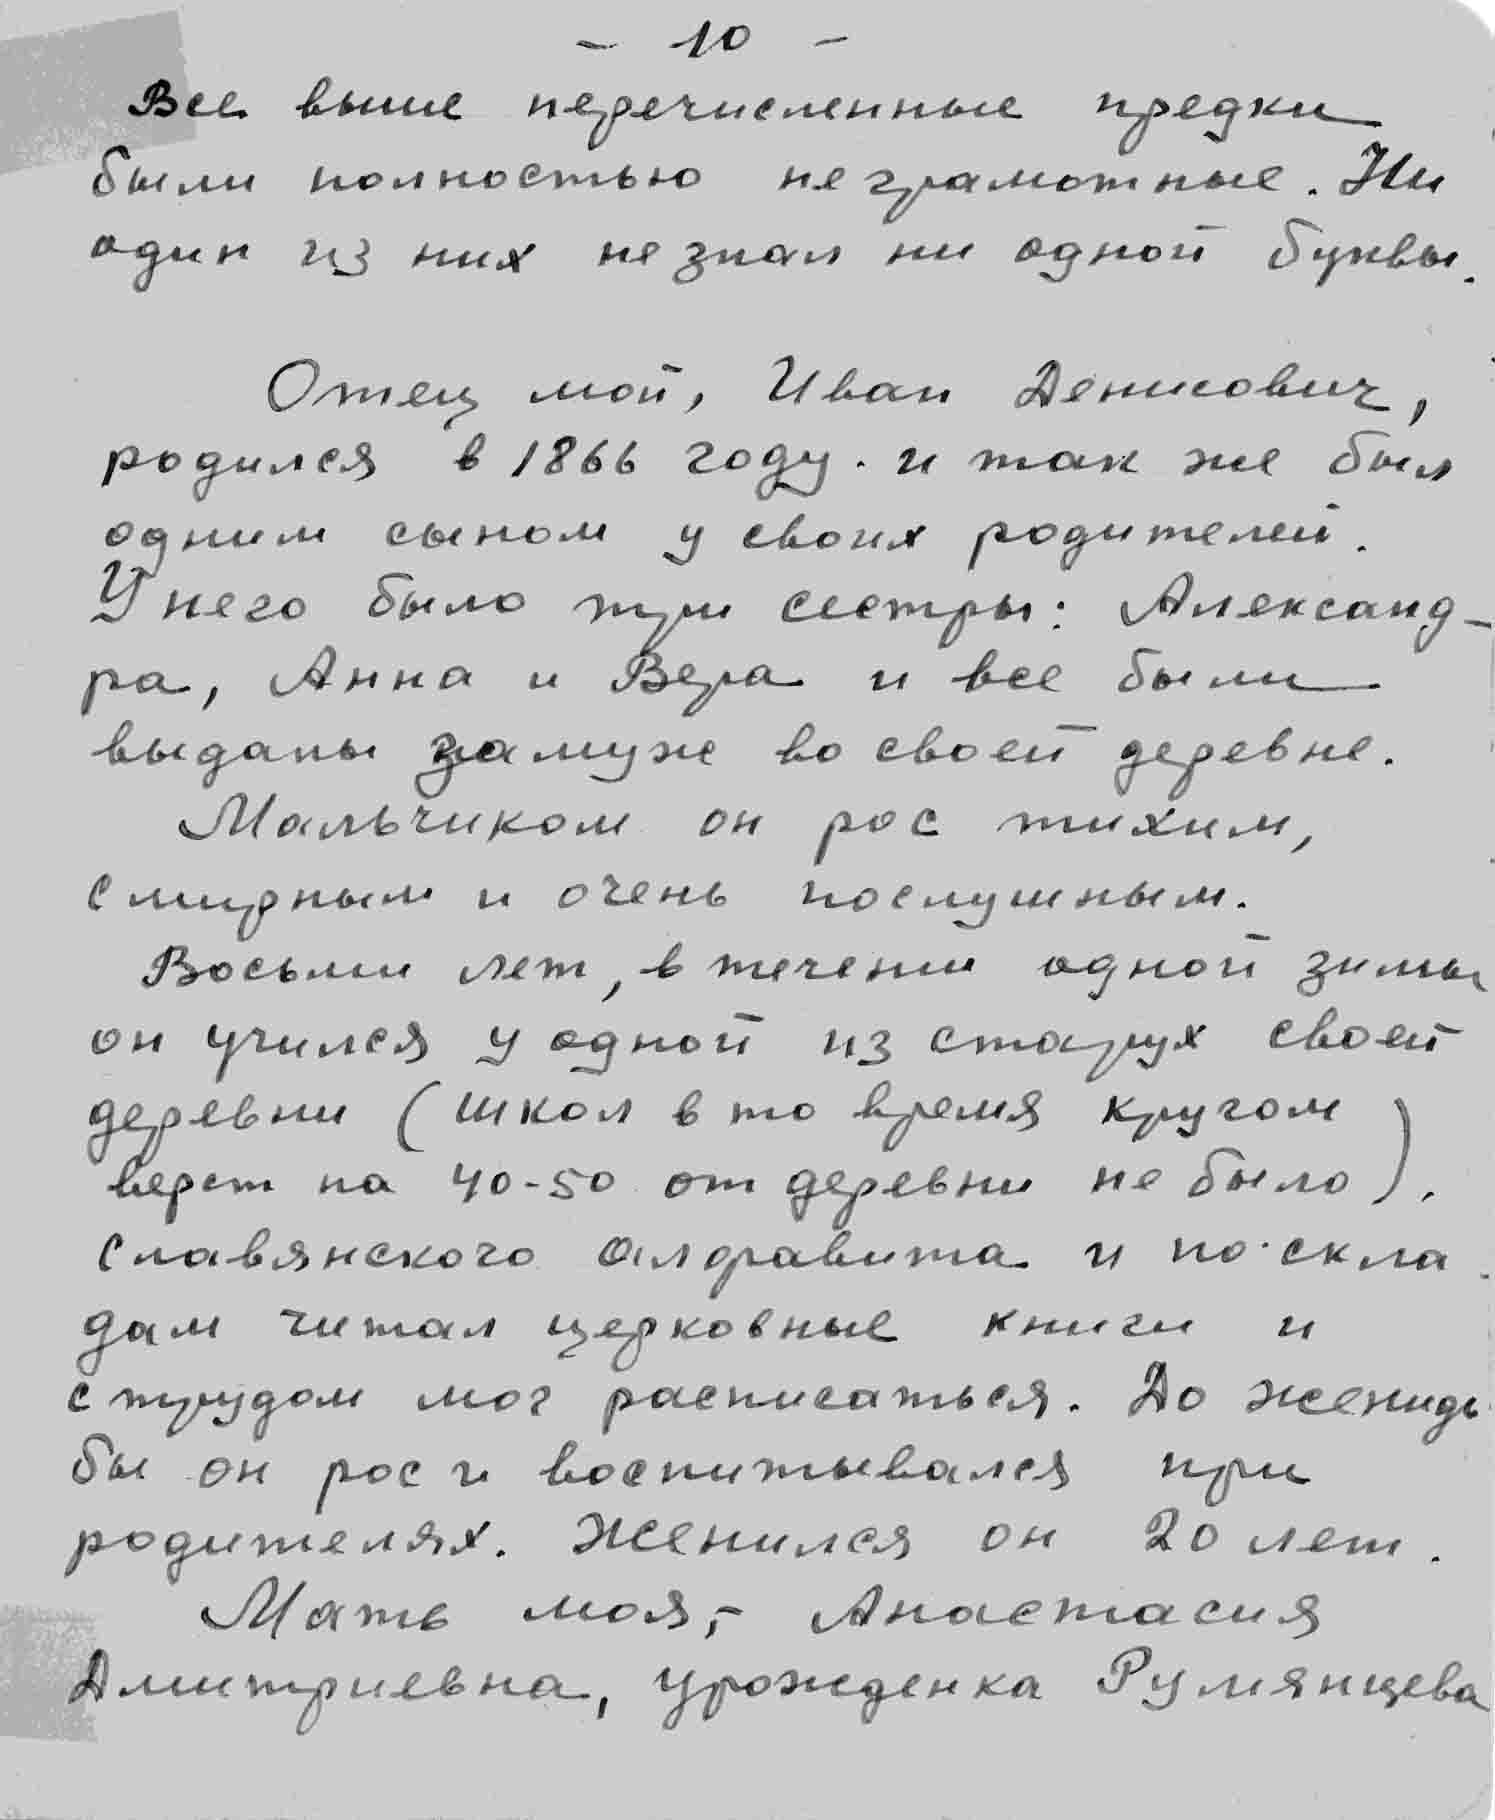 - 10 -
Все выше перечисленные предки
были полностью не грамотные. Ни
один из них не знал ни одной буквы.
Отец мой, Иван Денисович,
родился в 1866 году. и так же был
одним сыном у своих родителей.
У него было три сестры: Александ-
ра, Анна и Вера и все были
выданы замуж во своей деревне.
Мальчиком он рос тихим,
смирным и очень послушным.
Восьми лет, в течени одной зимы
он учился у одной из старух своей
деревни (школ в то время кругом
верст на 40-50 от деревни не было).
славянского алфавита и по складам
дам читал церковные книги и
с трудом мог расписаться. До женидь
бы он рос и воспитывался при
родителях. Женился он 20 лет.
Мать моя,- Анастасия
Дмитриевна, урожденка Румянцева